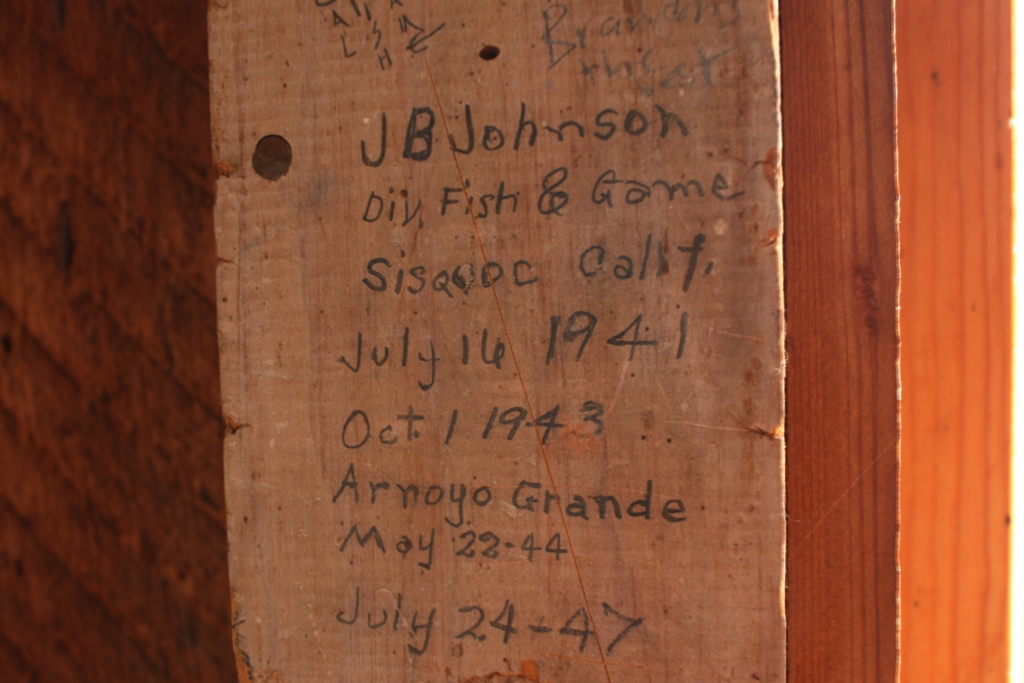 JB Johnson
Div. Fish & Game
Sisquoc Calif.
July 16 1941
Oct. 1 1943
Arroyo Grande
May 22-44
July 24-47